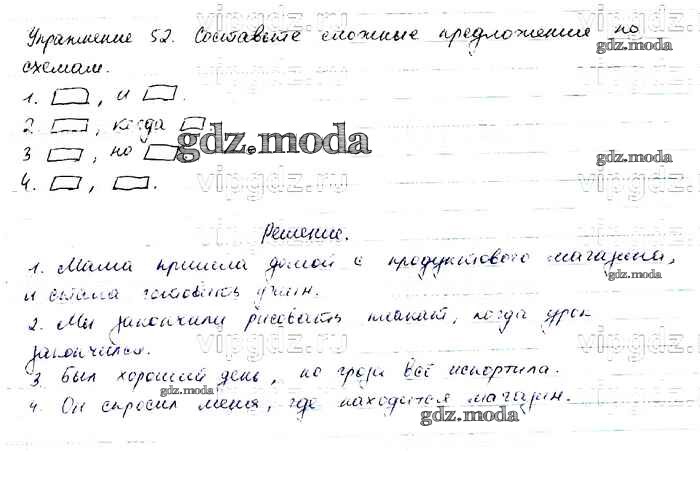 vipgdz.ru vipgdz.ru
Упражнение 52. Составьте сложные предложения по
gdz.moda
схемам.
1. , и .
2. , когда
gdz.moda
3 , но
gdz.moda
4. , .
vipgdz.ru vipgdz.ru
Решение.
1. Мама пришла домой с продуктового магазина,
gdz.moda
и стала готовить ужин.
2. Мы закончили рисовать плакат, когда урок
закончился.
vipgdz.ru vipgdz.ru
3. Был хороший день, но гроза всё испортила.
4. Он спросил меня, где находится магазин.
gdz.moda